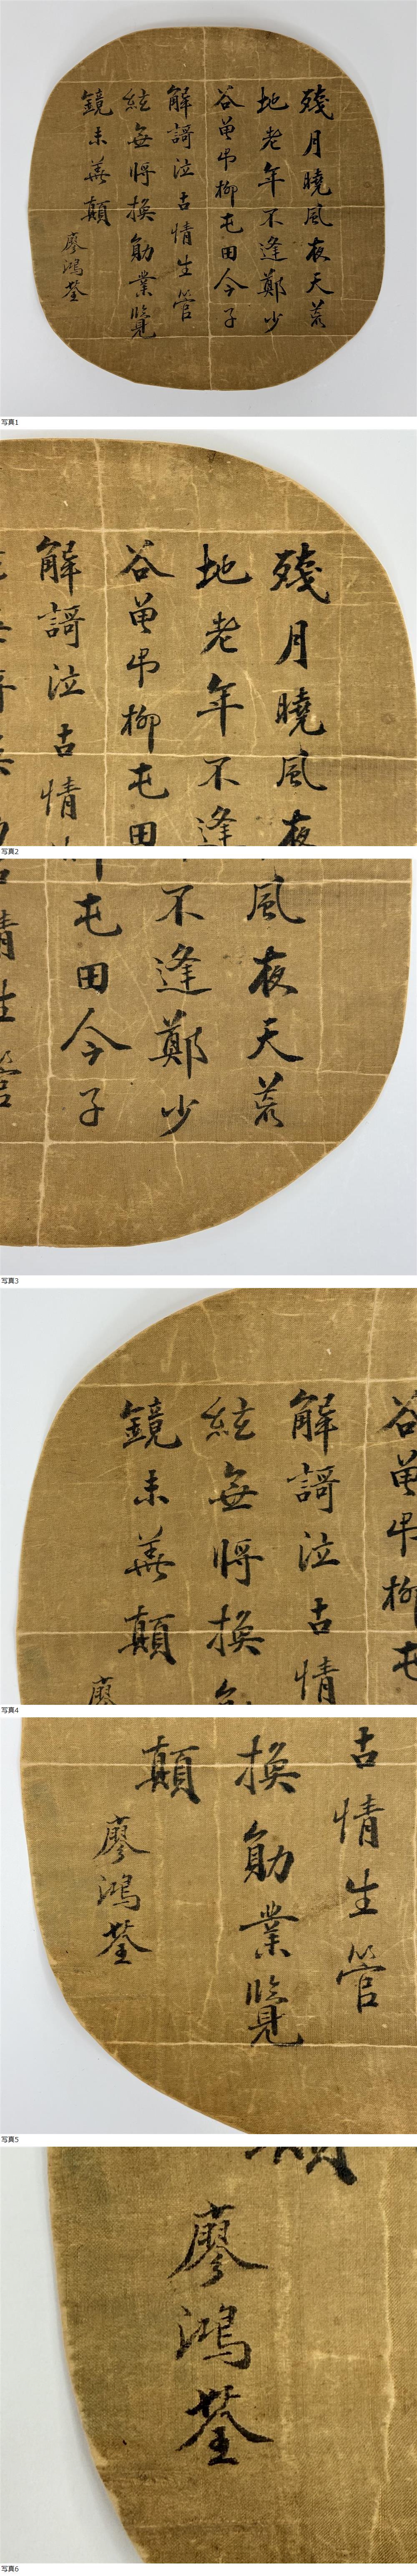 殘月曉風夜天荒
地老年不逢鄭少
谷曾弔柳屯田今子
解謌泣古情生管
絃無將換勛業覽
鏡未華顛
廖鴻荃
写真1
殘月曉風夜
地老年不逢
谷曾弔柳屯田
解謌泣古情
写真2
風夜天荒
不逢鄭少
屯田今子
写真3
谷曾弔柳屯
解謌泣古情
絃無將換
鏡未華顛
廖
写真4
古情生管
換勛業覽
顛
廖鴻荃
写真5
廖鴻荃
写真6